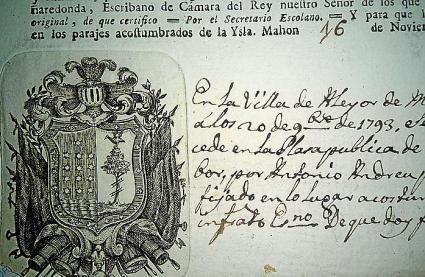 naredonda, Escribano de Cámara del Rey nuestro Señor de los que
original, de que certifico = Por el Secretario Escolano. = Y para que l
en los parajes acostumbrados de la Ysla. Mahon 16 de Novie
En La Villa de
a Los 20 de 9bre de 1793,
cede en La Plaza publica de
bor, por Antonio Andreu
fijado en lo Lugar acostu
infrato Esno. De que doy f